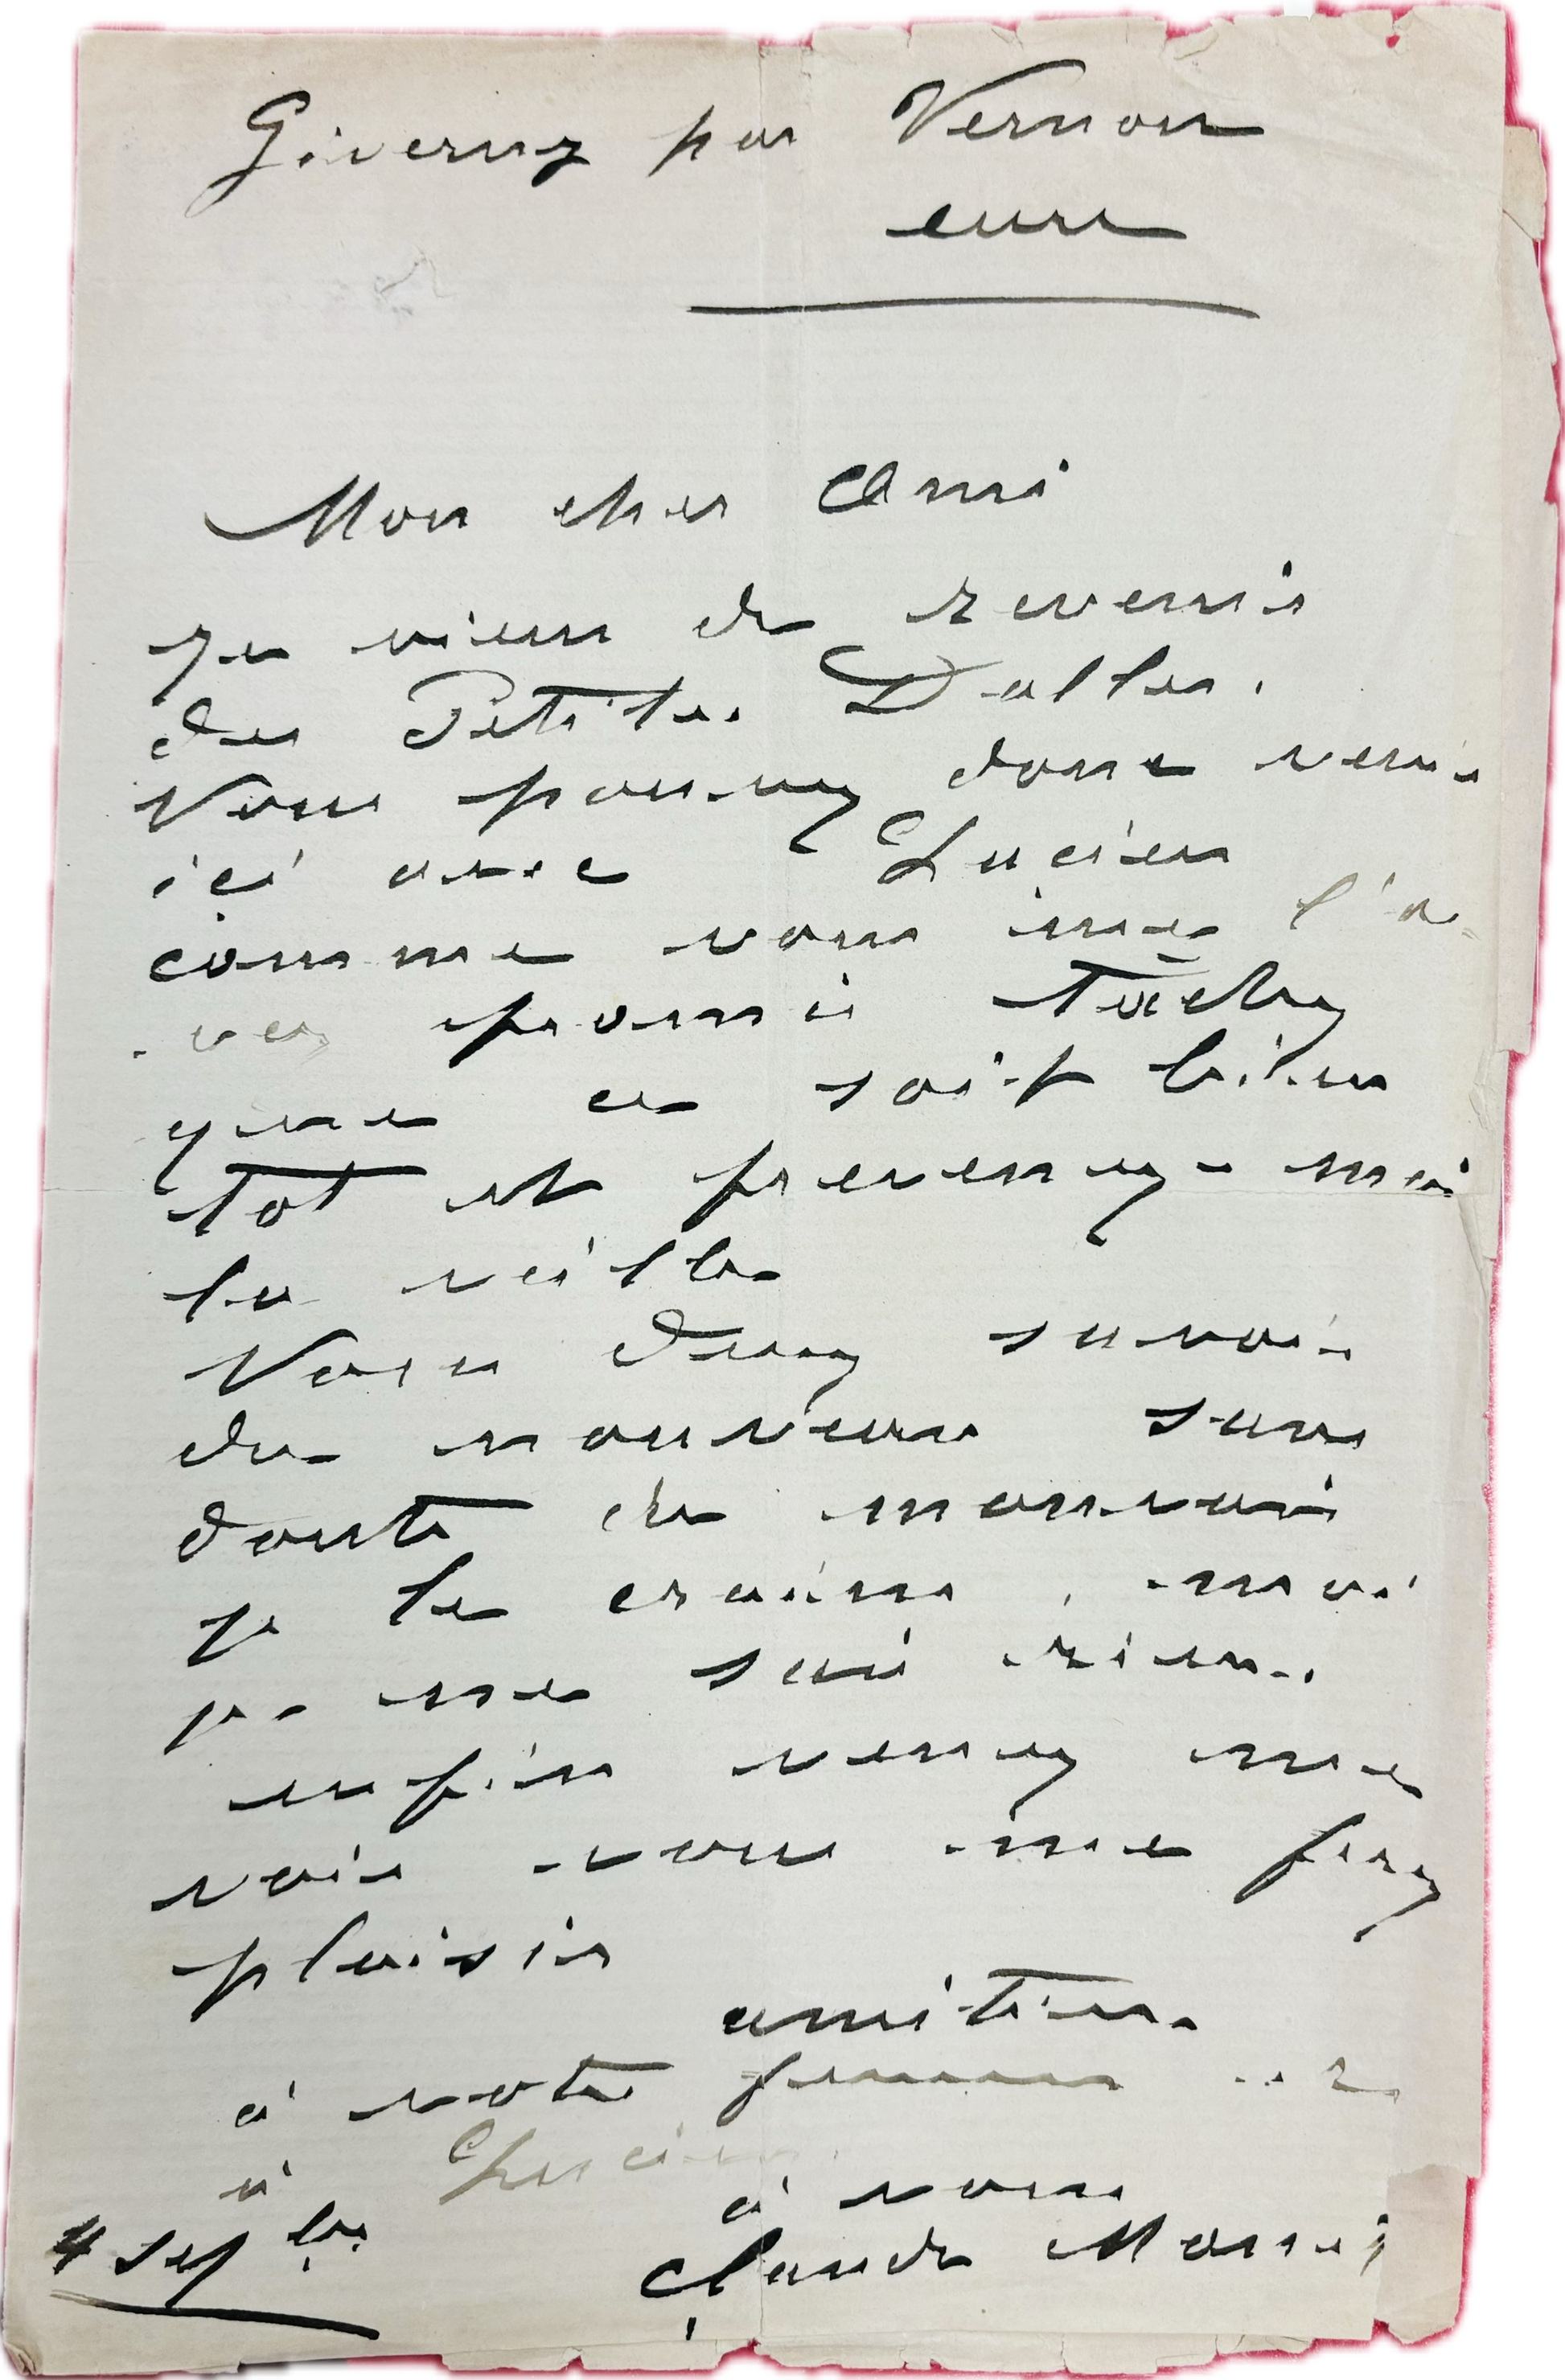 Giverny par Vernon
eure
Mon cher Ami
je viens de revenir
des Petites Dalles.
Vous pouvez donc venir
ici avec Lucien
comme vous me l'a-
vez promis tachez
que ce soit bien
tot et prevenez-moi
la veille
Vous devez savoir
du nouveau sans
doute du mauvais
je le crains, moi
je ne sais rien.
enfin venez me
voir vous me ferez
plaisir
amities
à votre femme et
à Lucien.
à vous
4 sept bre Claude Monet